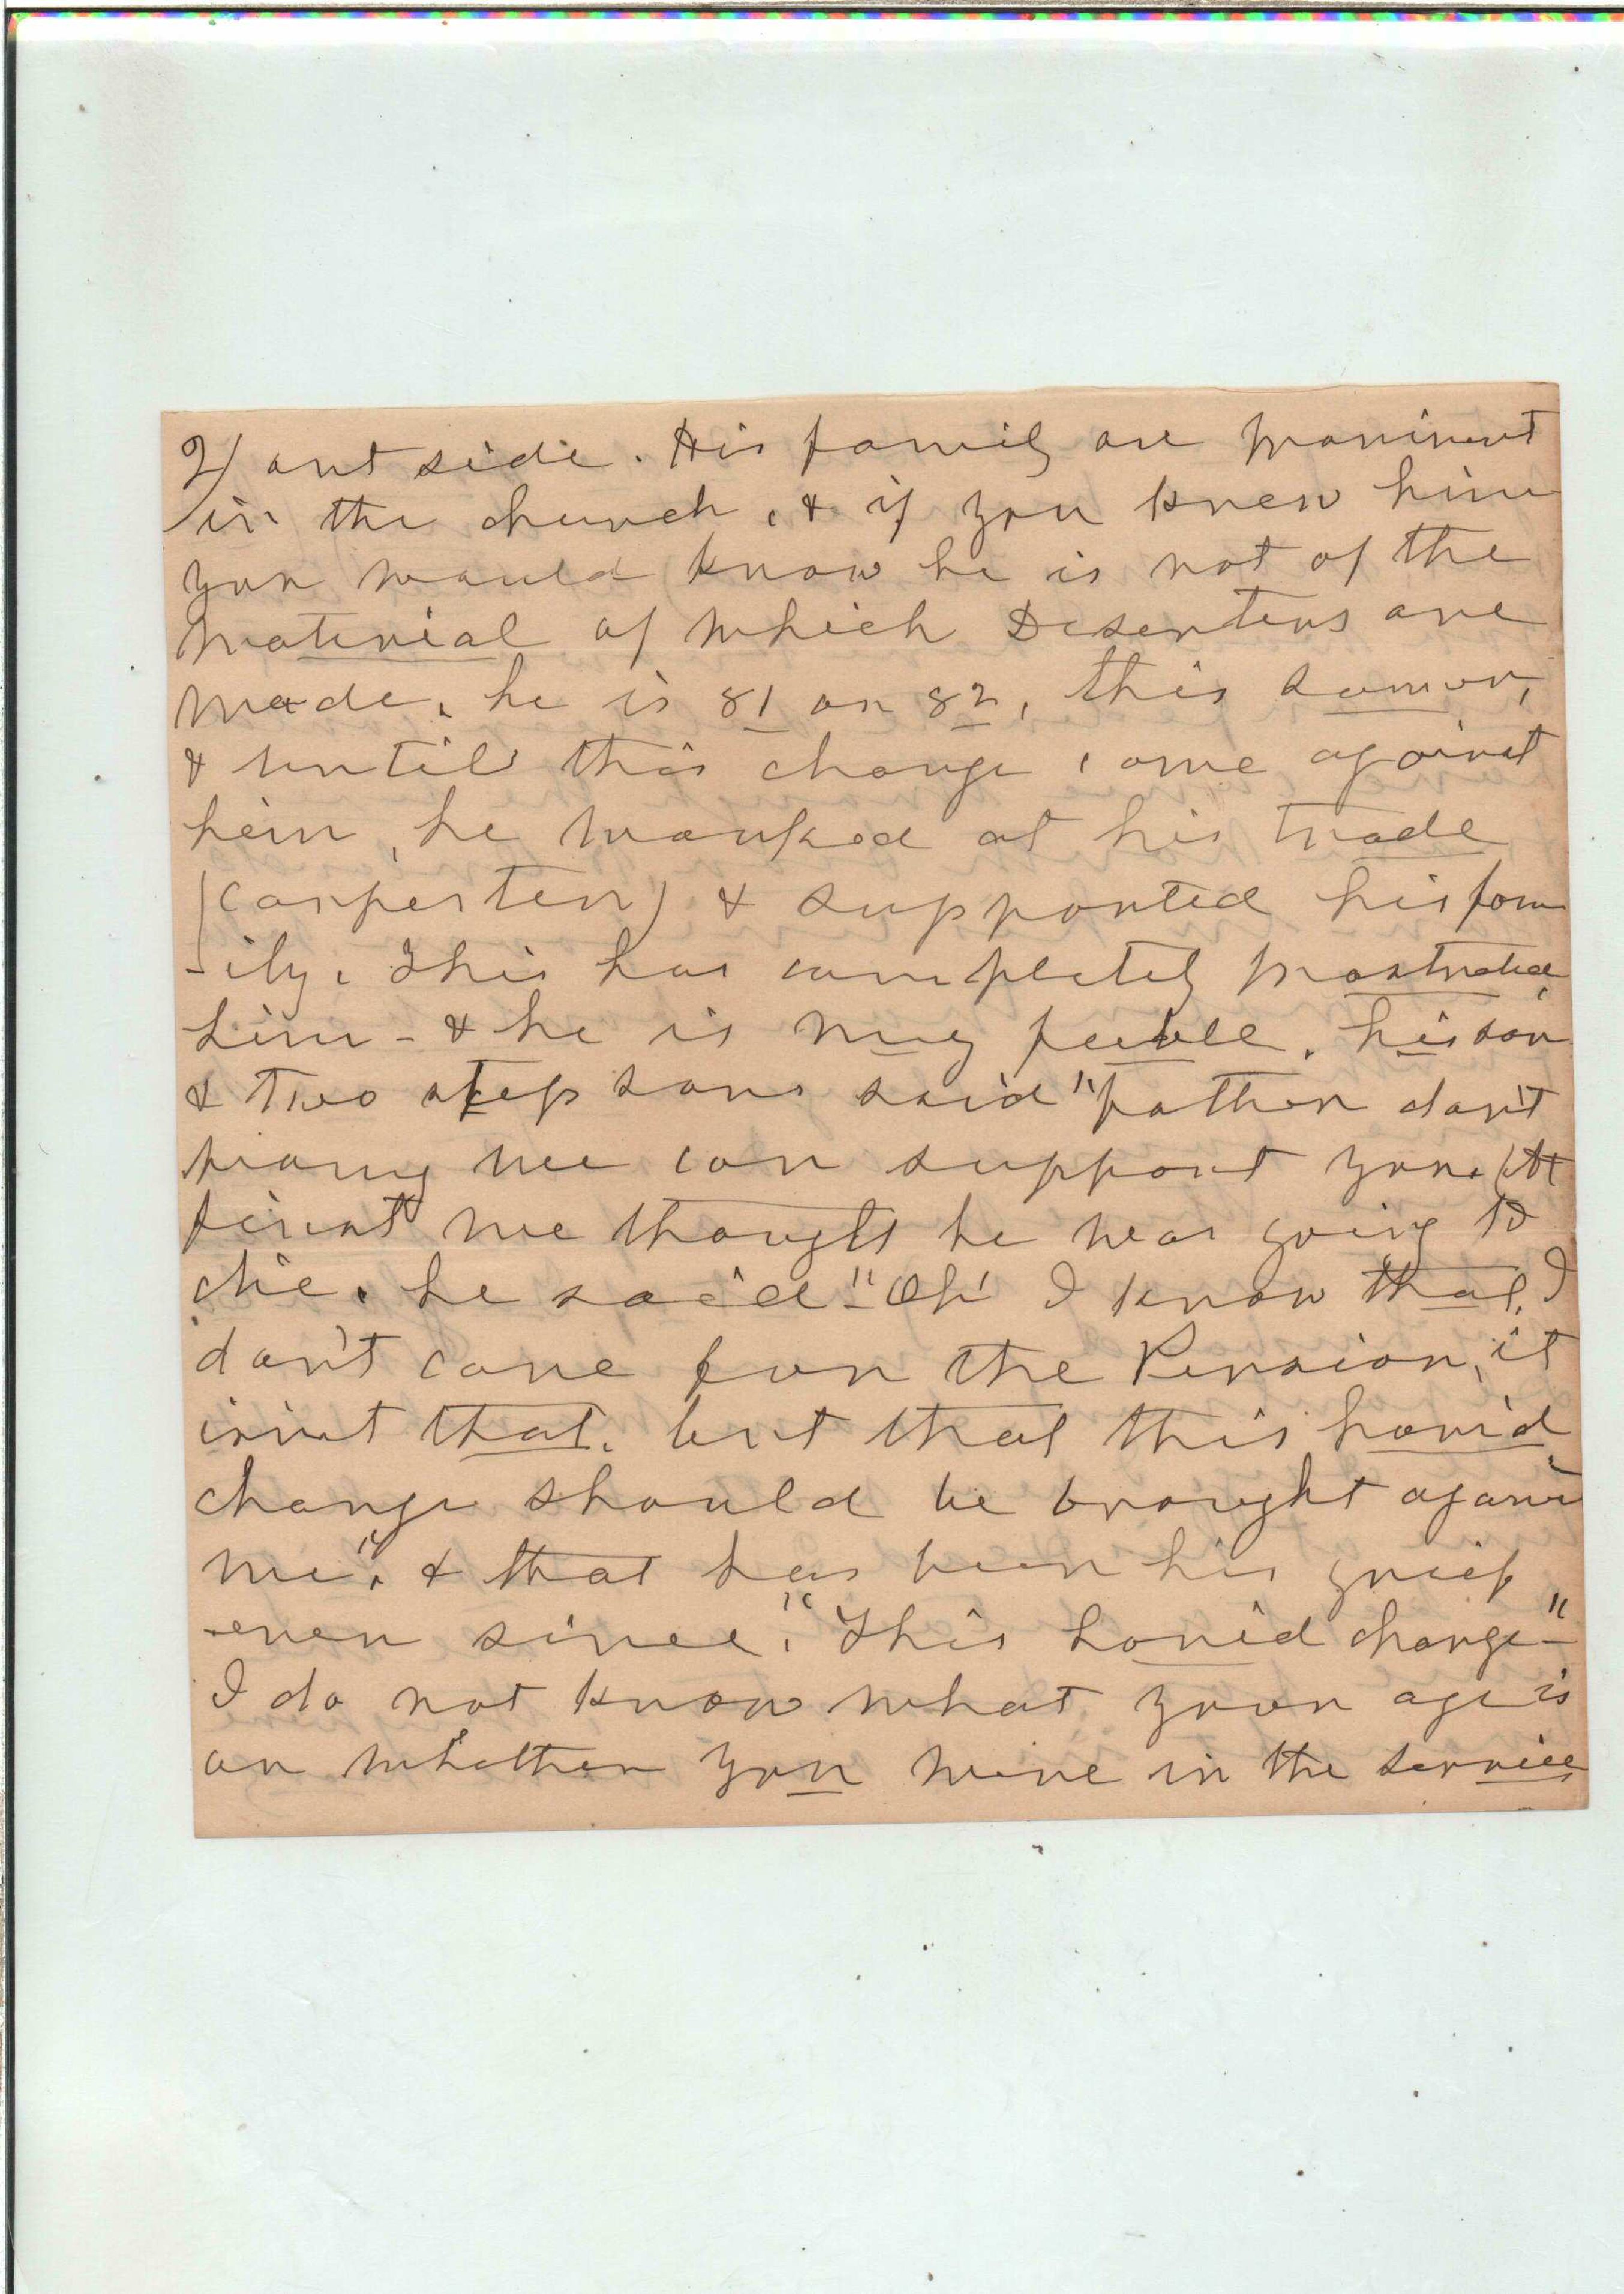 2/ out side. His family are prominent
in the church, & if you knew him
you would know he is not of the
material of which Deserters are
made, he is 81 or 82, this summer,
& until this charge came against
him, he worked at his trade
(carpenter) & supported his fam
-ily. This has completely prostrated
him - & he is very feeble. his son
& two step sons said "father don't
worry we can support you. (At
first we thought he was going to
die. he said "Oh' I know that, I
don't care for the Pension, it
isint that. but that this horrid
charge should be brought against
me". & that has been his grief
ever since. "This horrid charge"-
I do not know what your age is
or whether you were in the service